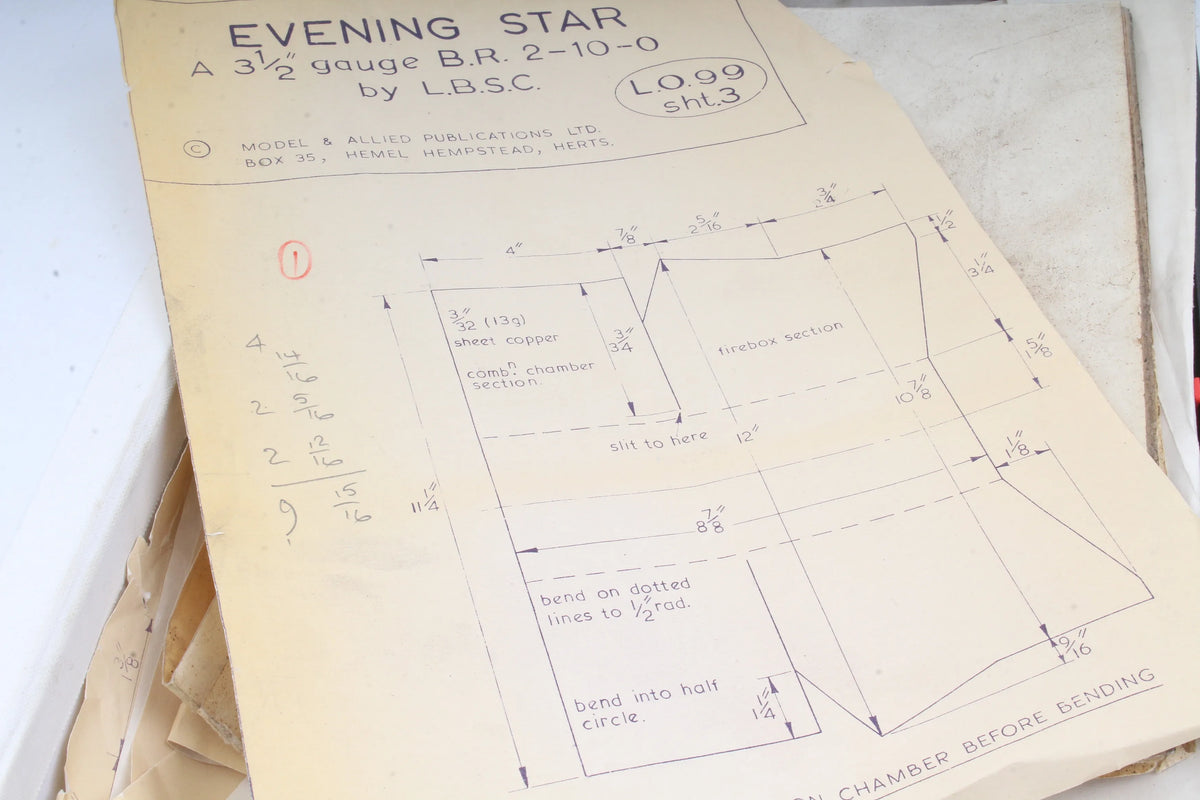 EVENING STAR
A 3 1/2" gauge B.R. 2-10-0
by L.B.S.C.
L.O.99
sht.3
© MODEL & ALLIED PUBLICATIONS LTD.
BOX 35, HEMEL HEMPSTEAD, HERTS.
1
4"
7/8"
2 5/16"
2 3/4"
1/2"
3 1/4"
1 5/8"
3/32" (13g)
sheet copper
combn. chamber
section.
3 3/4"
firebox section
10 7/8"
slit to here
12"
1 1/8"
11 1/4"
8 7/8"
4 14/16
2 5/16
2 12/16
9 15/16
bend on dotted
lines to 1/2" rad.
bend into half
circle.
1 1/4"
9/16"
CHAMBER BEFORE BENDING
1 3/8"